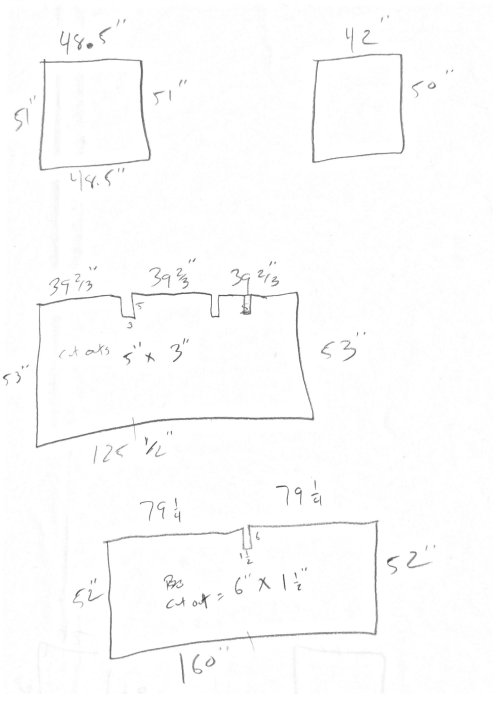 48.5"
42"
51"
51"
50"
48.5"
39 2/3"
39 2/3"
39 2/3"
5
3
cut outs 5" x 3"
53"
53"
125 1/2"
79 1/4
79 1/4
6
1 1/2
cut out = 6" x 1 1/2"
52"
52"
160"